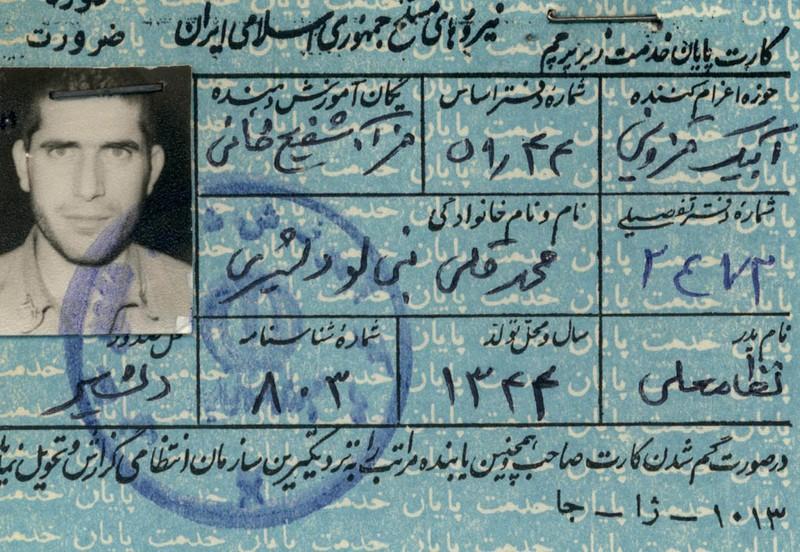 نیروهای مسلح جمهوری اسلامی ایران
ضرورت
کارت پایان خدمت زیر پرچم
حوزه اعزام کننده
شماره دفتر اساس
یگان آموزش دهنده
آبیک قزوین
۵۹ر۴۴
شماره دفتر تفصیلی
نام و نام خانوادگی
۲۴۷۳
محمد قلی نبی لو دلشیری
نام پدر
سال و محل تولد
شماره شناسنامه
محل صدور
نظامعلی
۱۳۴۴
۸۰۳
درصورت گم شدن کارت صاحب و همچنین یابنده مراتب را به نزدیکترین سازمان انتظامی گزارش و تحویل
۱۰۱۳ – ژا – جا